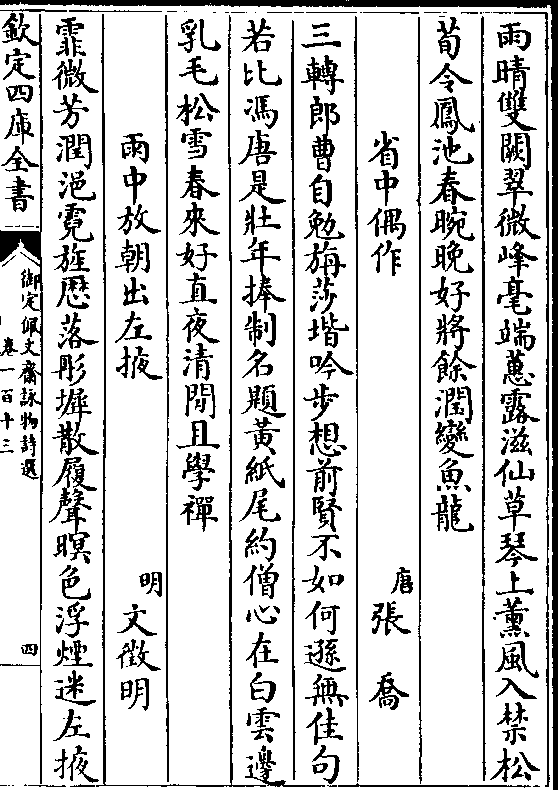 雨晴雙闕翠微峰毫端蕙露滋仙草琴上薰風入禁松
荀令鳳池春晼晚好將餘潤變魚龍
省中偶作 唐張喬
三轉郎曹自勉旃莎堦吟步想前賢不如何遜無佳句
若比馮唐是壯年捧制名題黃紙尾約僧心在白雲邊
乳毛松雪春來好直夜清閒且學禪
雨中放朝出左掖 明文徵明
霏微芳潤浥霓旌歷落彤墀散履聲暝色浮煙迷左掖
欽定四庫全書
御定佩文齋詠物詩選
卷一百十三
四